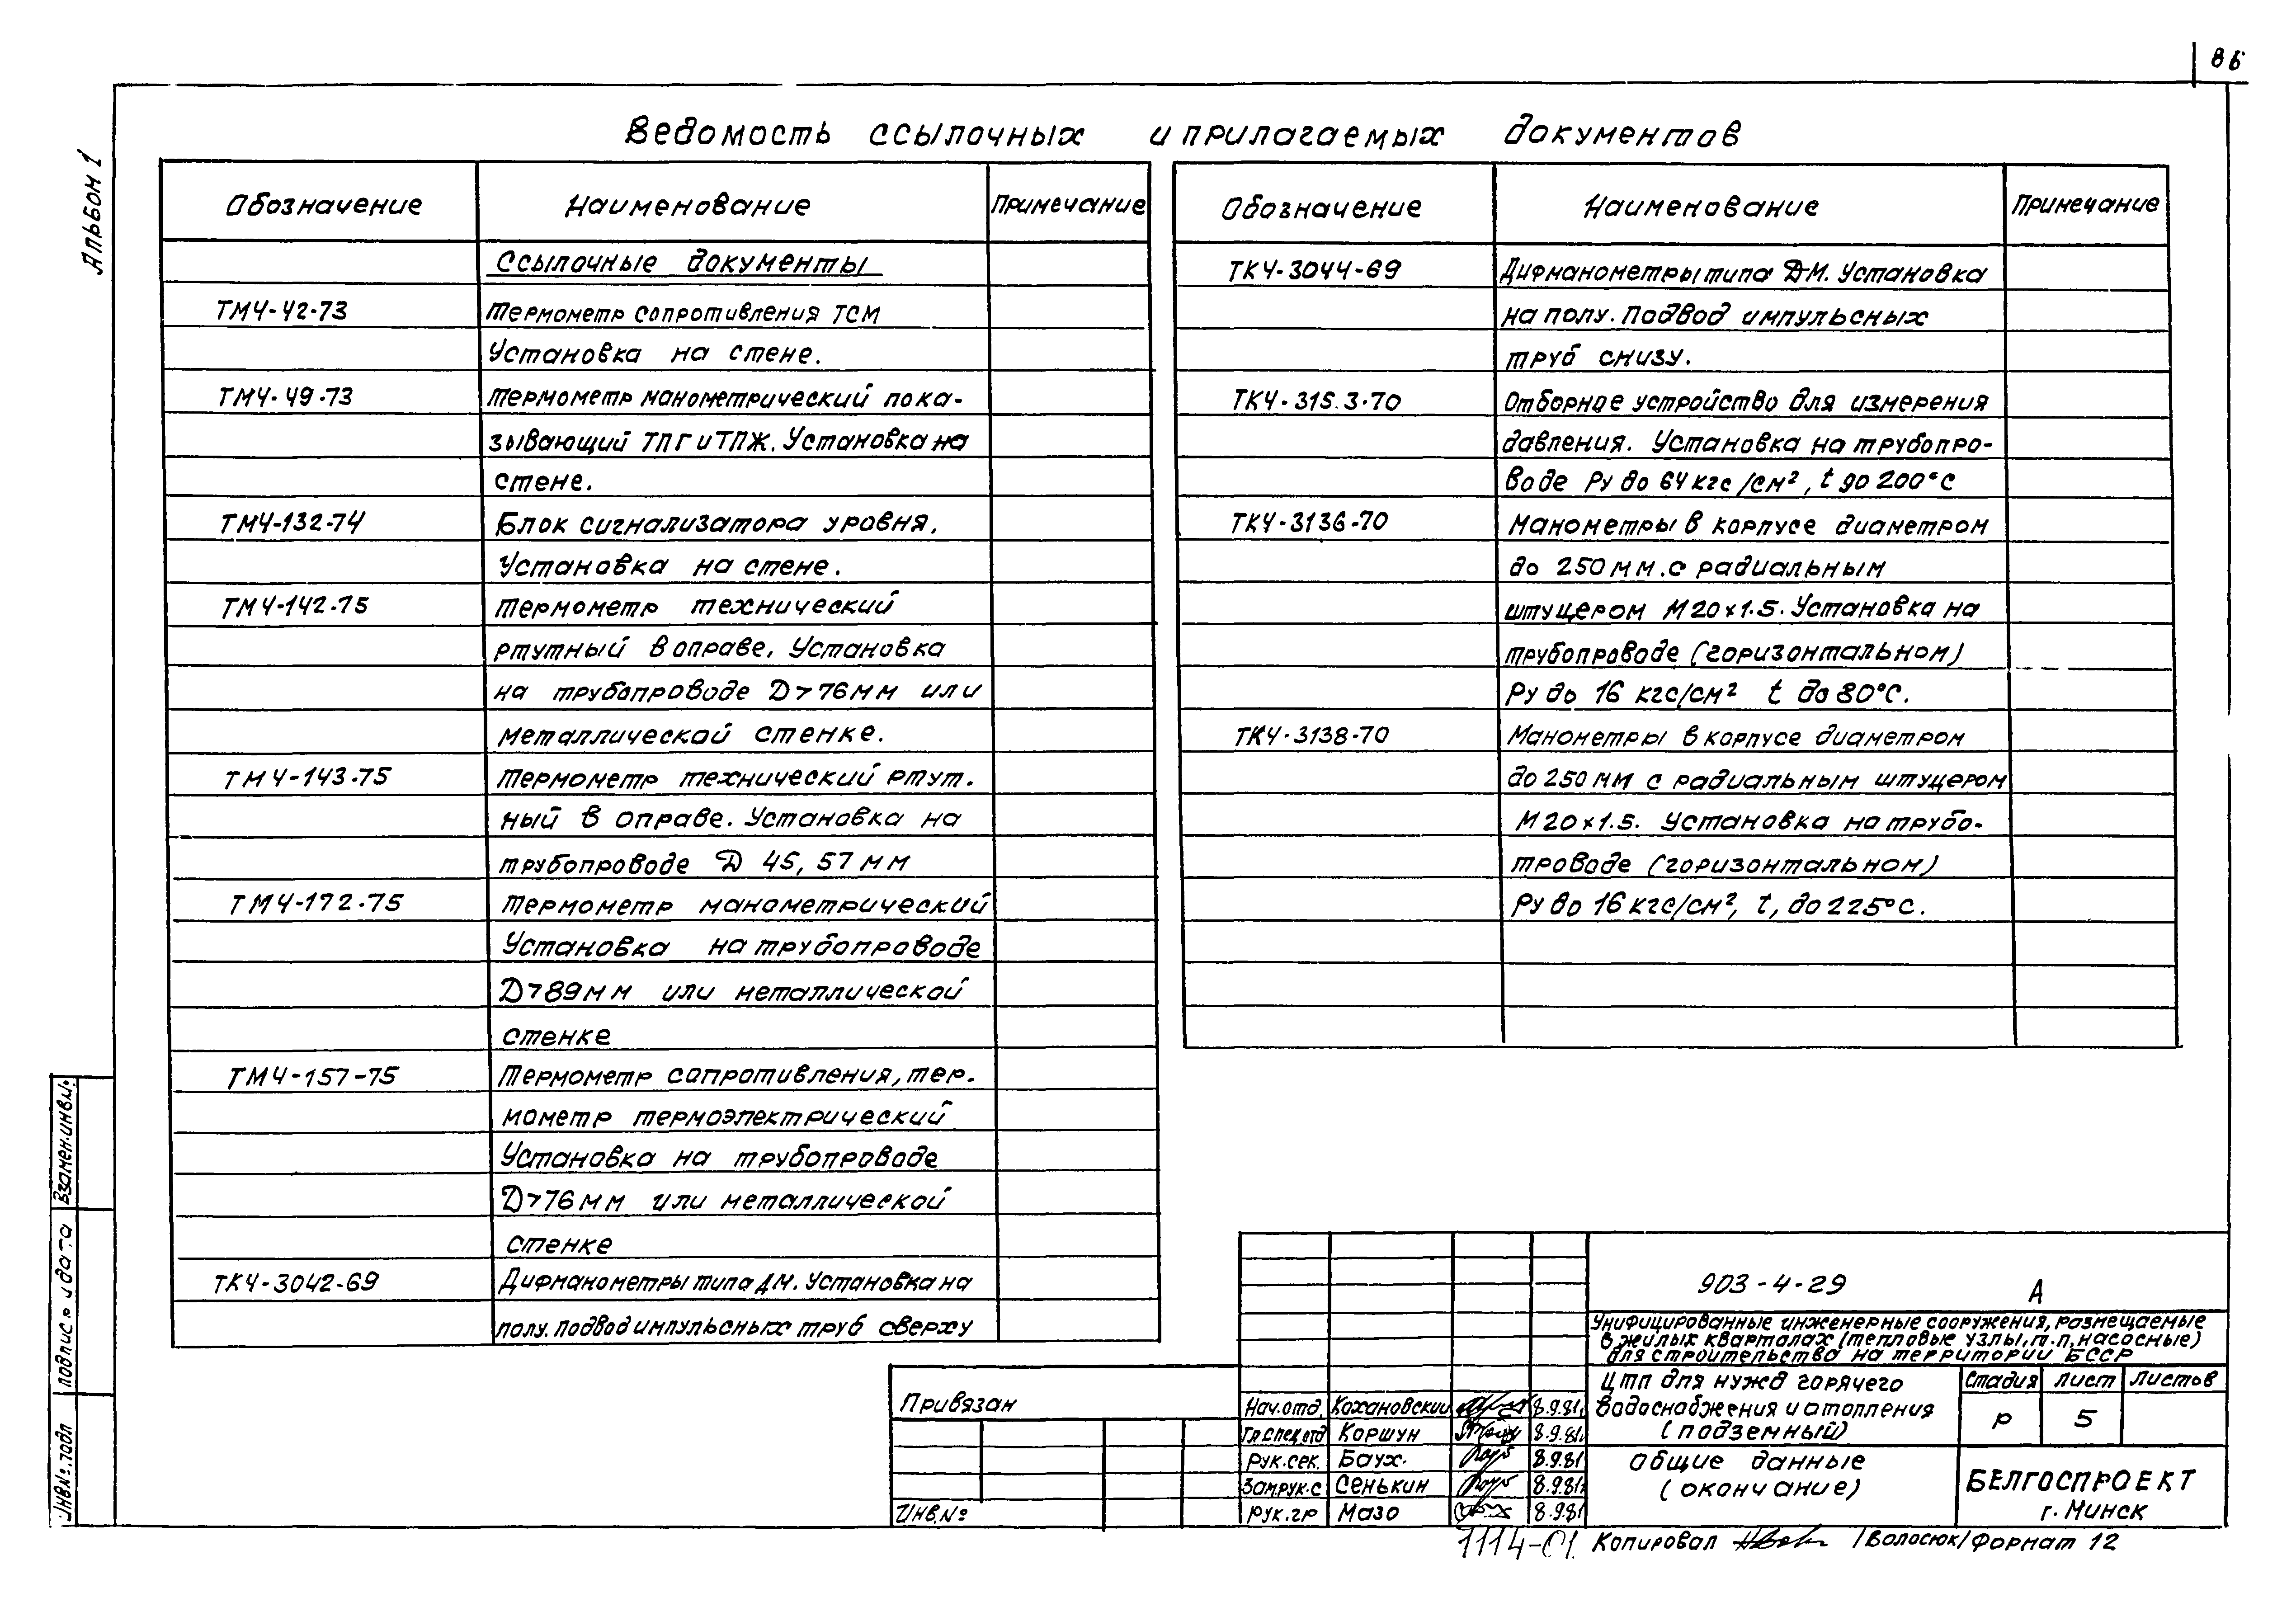 86
Альбом 1
Ведомость ссылочных и прилагаемых документов
Обозначение Наименование Примечание
Ссылочные документы
ТМ4-42-73 Термометр сопротивления ТСМ
Установка на стене.
ТМ4-49-73 Термометр манометрический пока-
зывающий ТПГ и ТПЖ. Установка на
стене.
ТМ4-132-74 Блок сигнализатора уровня.
Установка на стене.
ТМ4-142-75 Термометр технический
ртутный в оправе. Установка
на трубопроводе D>76мм или
металлической стенке.
ТМ4-143-75 Термометр технический ртут.
ный в оправе. Установка на
трубопроводе Д 45, 57 мм
ТМ4-172-75 Термометр манометрический
Установка на трубопроводе
D>89мм или металлической
стенке
ТМ4-157-75 Термометр сопротивления, тер.
мометр термоэлектрический
Установка на трубопроводе
D>76мм или металлической
стенке
ТК4-3042-69 Дифманометры типа ДМ. Установка на
полу. Подвод импульсных труб сверху
Обозначение Наименование Примечание
ТК4-3044-69 Дифманометры типа ДМ. Установка
на полу. Подвод импульсных
труб снизу.
ТК4-315.3-70 Отборное устройство для измерения
давления. Установка на трубопро-
воде Ру до 64 кгс/см², t до 200°С
ТК4-3136-70 Манометры в корпусе диаметром
до 250 мм. с радиальным
штуцером М20х1.5. Установка на
трубопроводе (горизонтальном)
Ру до 16 кгс/см² t до 80°С.
ТК4-3138-70 Манометры в корпусе диаметром
до 250 мм с радиальным штуцером
М20х1.5. Установка на трубо-
проводе (горизонтальном)
Ру до 16 кгс/см², t, до 225°С.
Взамен.инв.№.
Подпись и дата
Инв.№.подл
Привязан
Инв.№
Нач.отд. Кохановский 8.9.81
Гл.спец.отд Коршун 8.9.81
Рук.сек. Баух. 8.9.81
Зам.рук.с Сенькин 8.9.81
Рук.гр Мазо 8.9.81
903-4-29 А
Унифицированные инженерные сооружения, размещаемые
в жилых кварталах (тепловые узлы, т.п, насосные)
для строительства на территории БССР
ЦТП для нужд горячего
водоснабжения и отопления
(подземный)
Стадия Лист Листов
Р 5
Общие данные
(окончание)
БЕЛГОСПРОЕКТ
г. Минск
7114-01 Копировал /Волосюк/ Формат 12